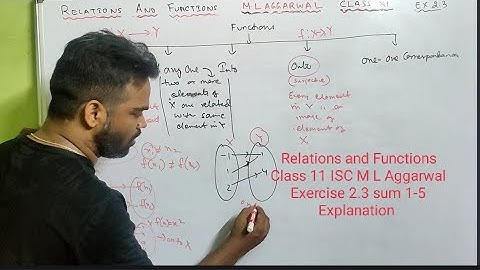 RELATIONS AND FUNCTIONS M L AGGARWAL CLASS XI EX 2.3
Functions
X → Y
f: X → Y
any One
Into
Onto
one-one Correspondence
two or more
elements of
X are related
with same
element in Y
(surjective)
Every element
in Y is a
image of
element of
X
x₁ ≠ x₂
f(x₁) ≠ f(x₂)
X
Y
-1
1
2
4
f(x₁)
f(x₂)
f(x)=x²
onto
Relations and Functions
Class 11 ISC M L Aggarwal
Exercise 2.3 sum 1-5
Explanation